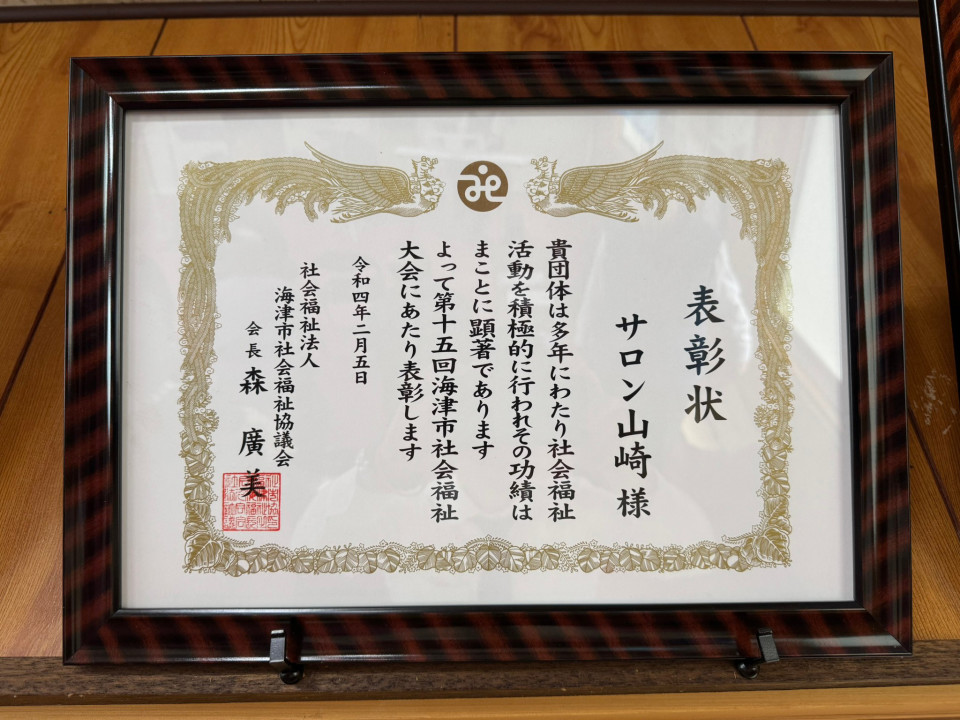 表彰状
サロン山崎様
貴団体は多年にわたり社会福祉
活動を積極的に行われその功績は
まことに顕著であります
よって第十五回海津市社会福祉
大会にあたり表彰します
令和四年二月五日
社会福祉法人
海津市社会福祉協議会
会長 森 廣美